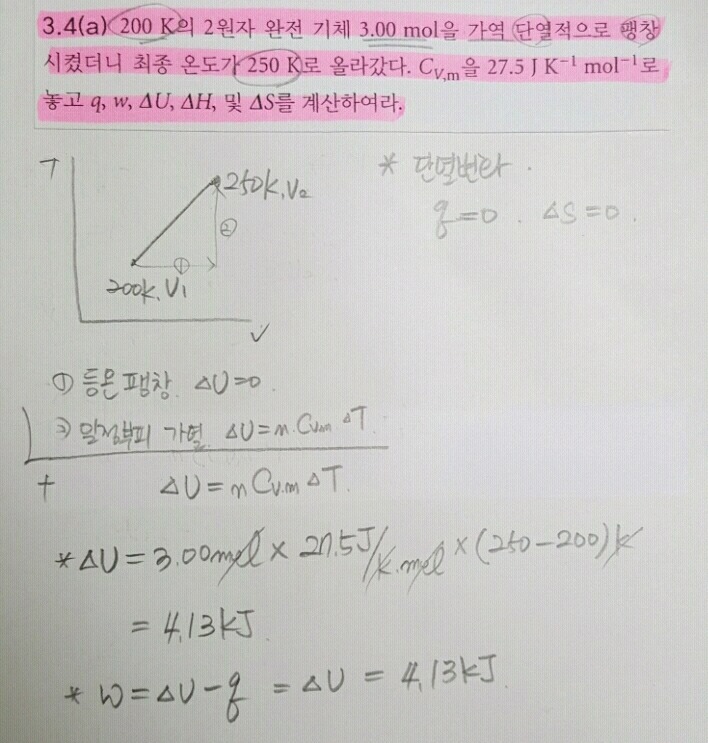 3.4(a) 200 K의 2원자 완전 기체 3.00 mol을 가역 단열적으로 팽창
시켰더니 최종 온도가 250 K로 올라갔다. C_V,m을 27.5 J K⁻¹ mol⁻¹로
놓고 q, w, ΔU, ΔH, 및 ΔS를 계산하여라.
T
250K, V₂
②
①
200K, V₁
V
* 단열변화.
q=0. ΔS=0.
① 등온 팽창. ΔU=0.
② 일정부피 가열. ΔU=n.Cv.m ΔT.
+ ΔU=n Cv.m ΔT.
* ΔU = 3.00mol × 27.5J/K.mol × (250-200)K
= 4.13kJ.
* W = ΔU - q = ΔU = 4.13kJ.